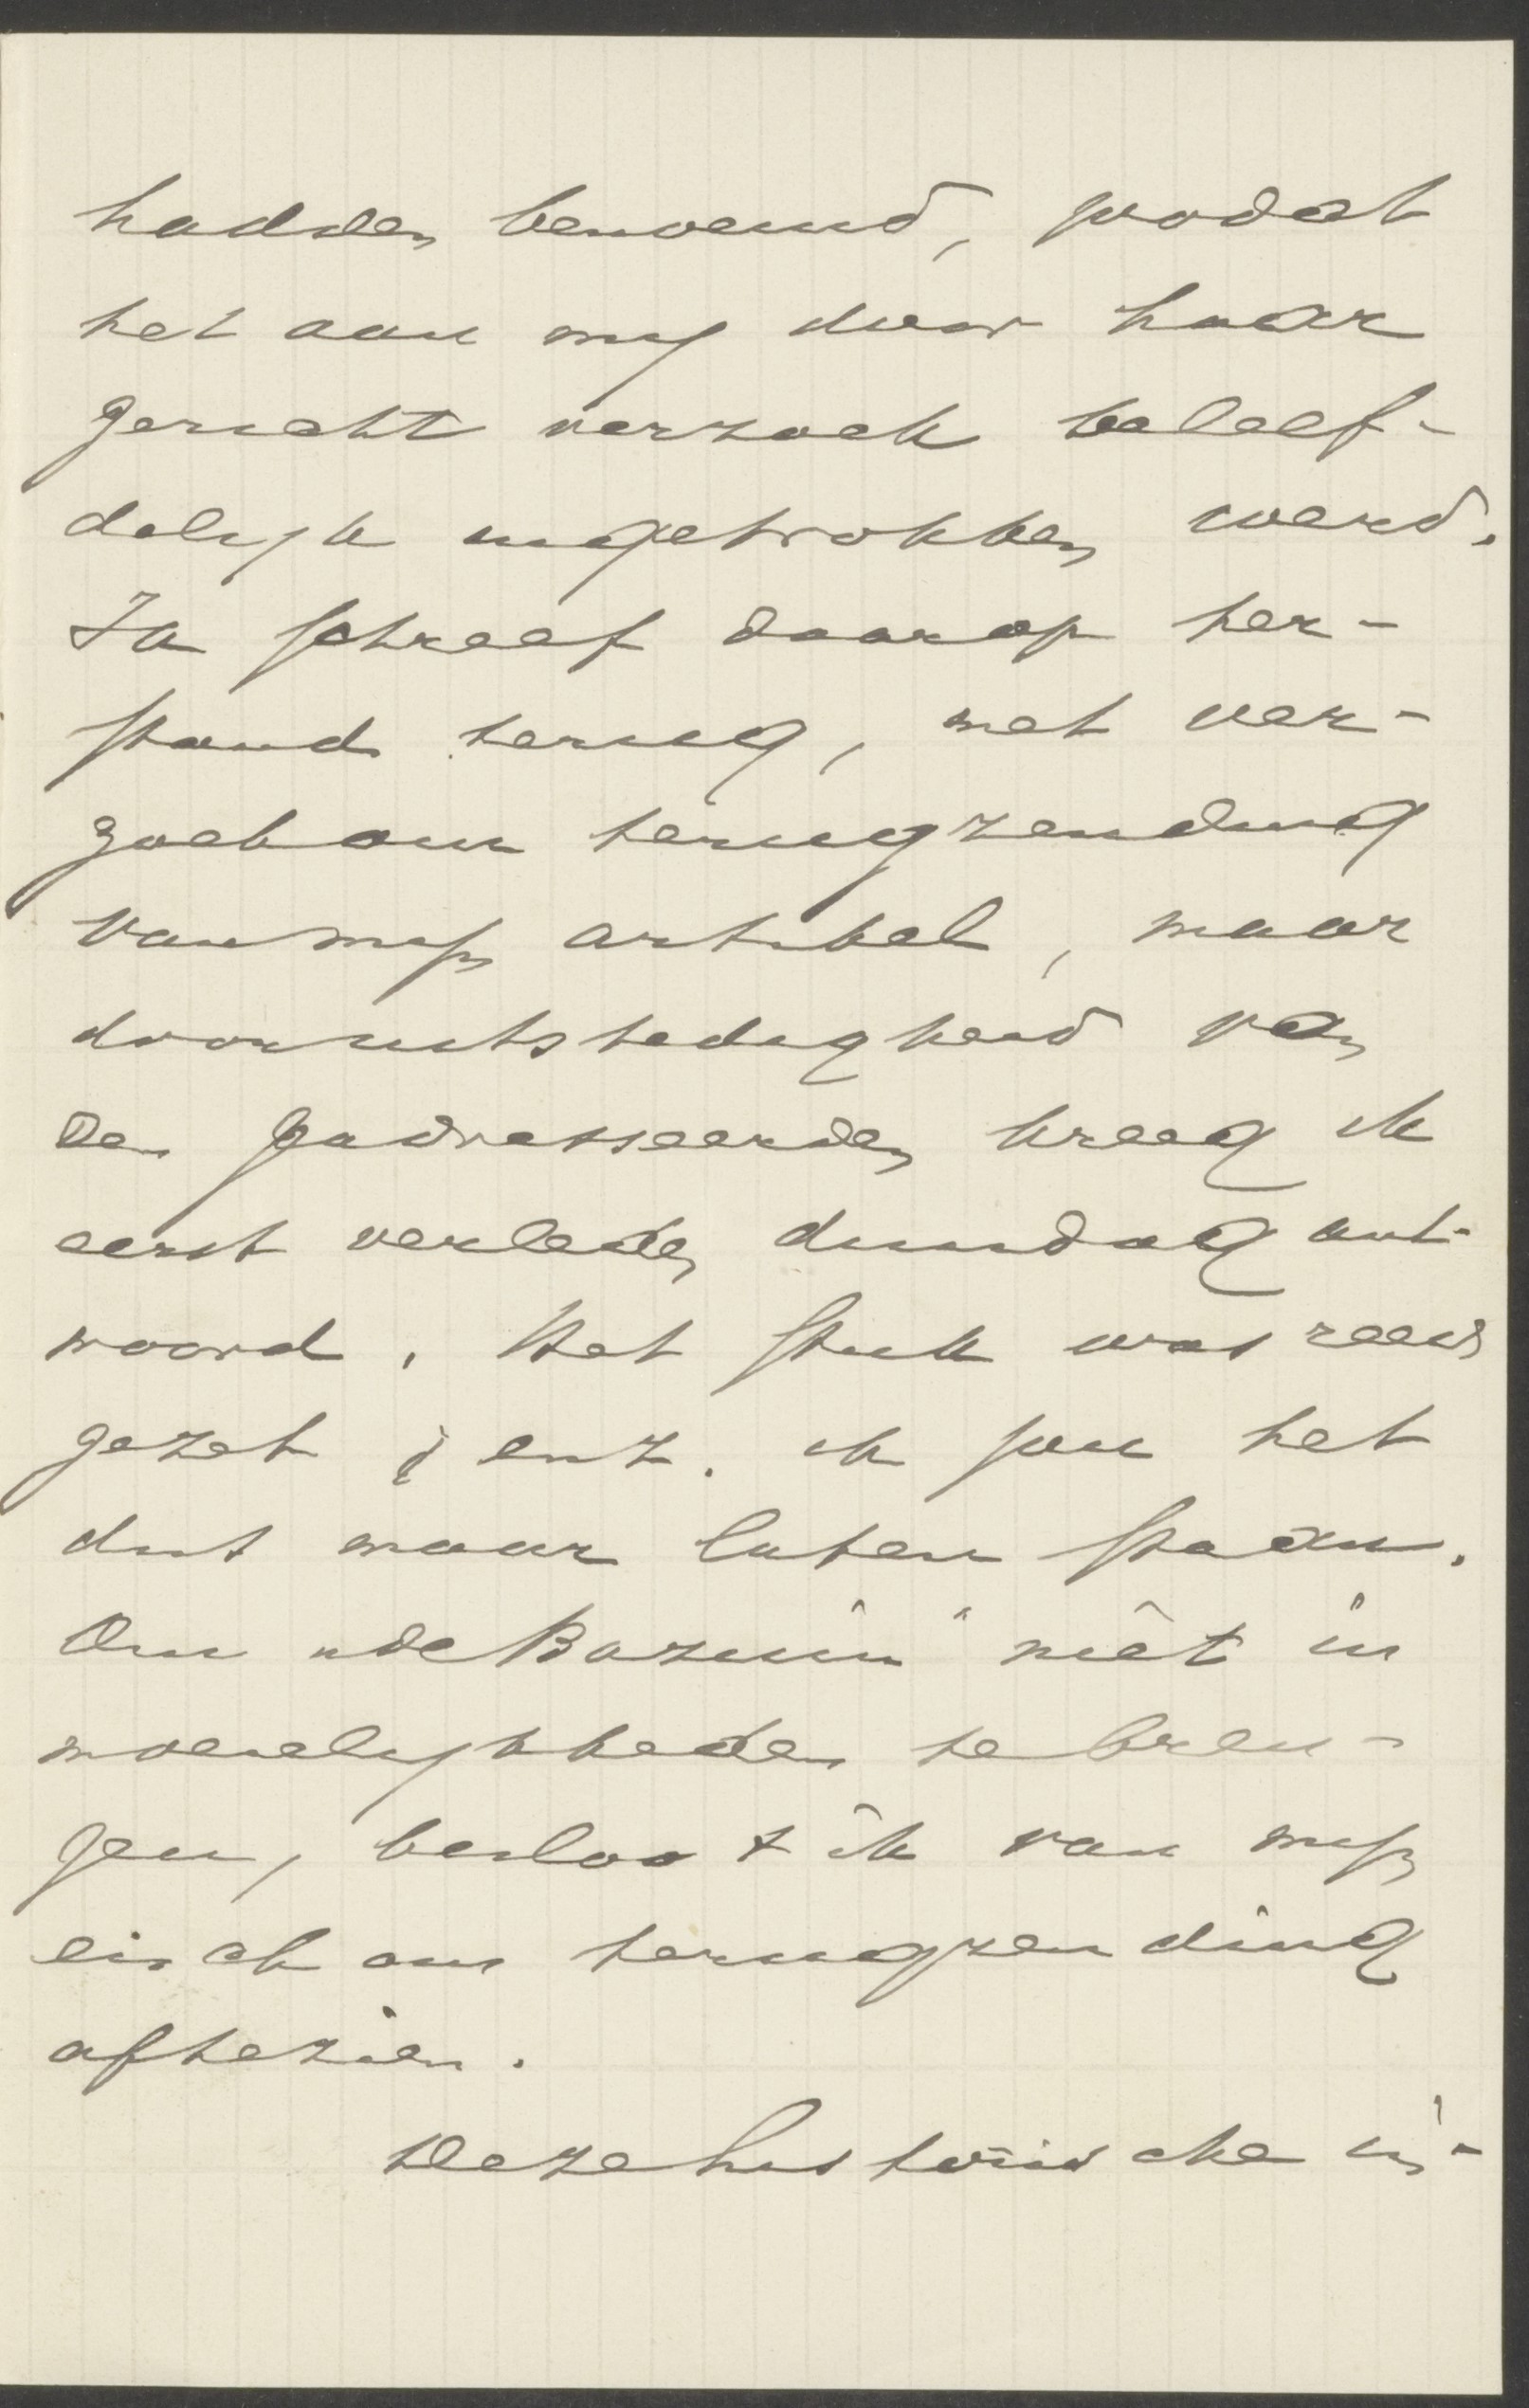 hadden benoemd, zoodat
het aan mij door haar
gericht verzoek beleef-
delijk ingetrokken werd.
Ik schreef daarop ter-
stond terug, met ver-
zoek om terugzending
van mijn artikel, maar
door uitstedigheid van
den geadresseerden kreeg ik
eerst verleden dinsdag ant-
woord. Het stuk was reeds
gezet; enz. ik zou het
dus maar laten staan.
Om "de Bazuin" niet in
moeielijkheden te bren-
gen, besloot ik van mijn
eisch om terugzending
af te zien.
Deze historische in-